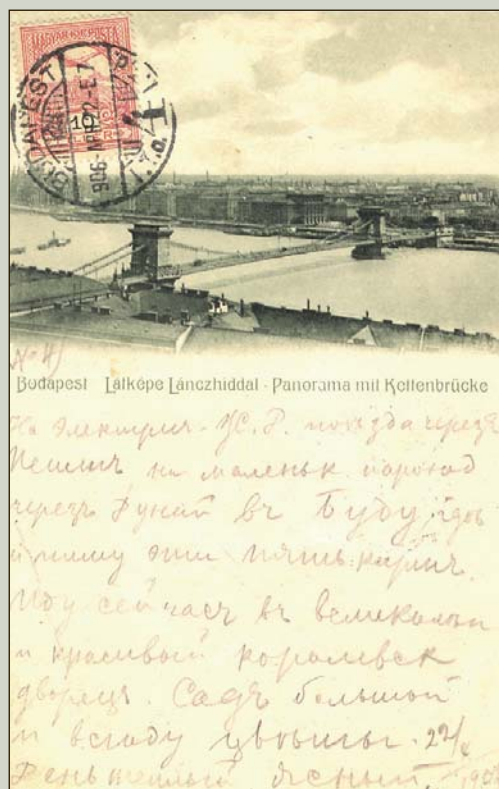 MAGYAR KIR. POSTA
10
BUDAPEST
906 APR 22-E7
№ 4)
Budapest Látképe Lánczhiddal - Panorama mit Kettenbrücke
На электрич. Ж. Д. поезда через
на маленьк пароход
черезъ Дунай въ Буду, гдѣ
и пишу эти пять
Иду сейчасъ въ великолѣп
и красивый королевск
дворецъ. Садъ большой
и всюду цвѣты. 22/4
День теплый ясный,